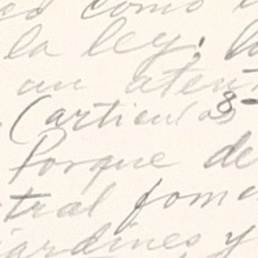 como
la ley,
un atent
(articulos 8-
Porque de
tral fome
jardines y